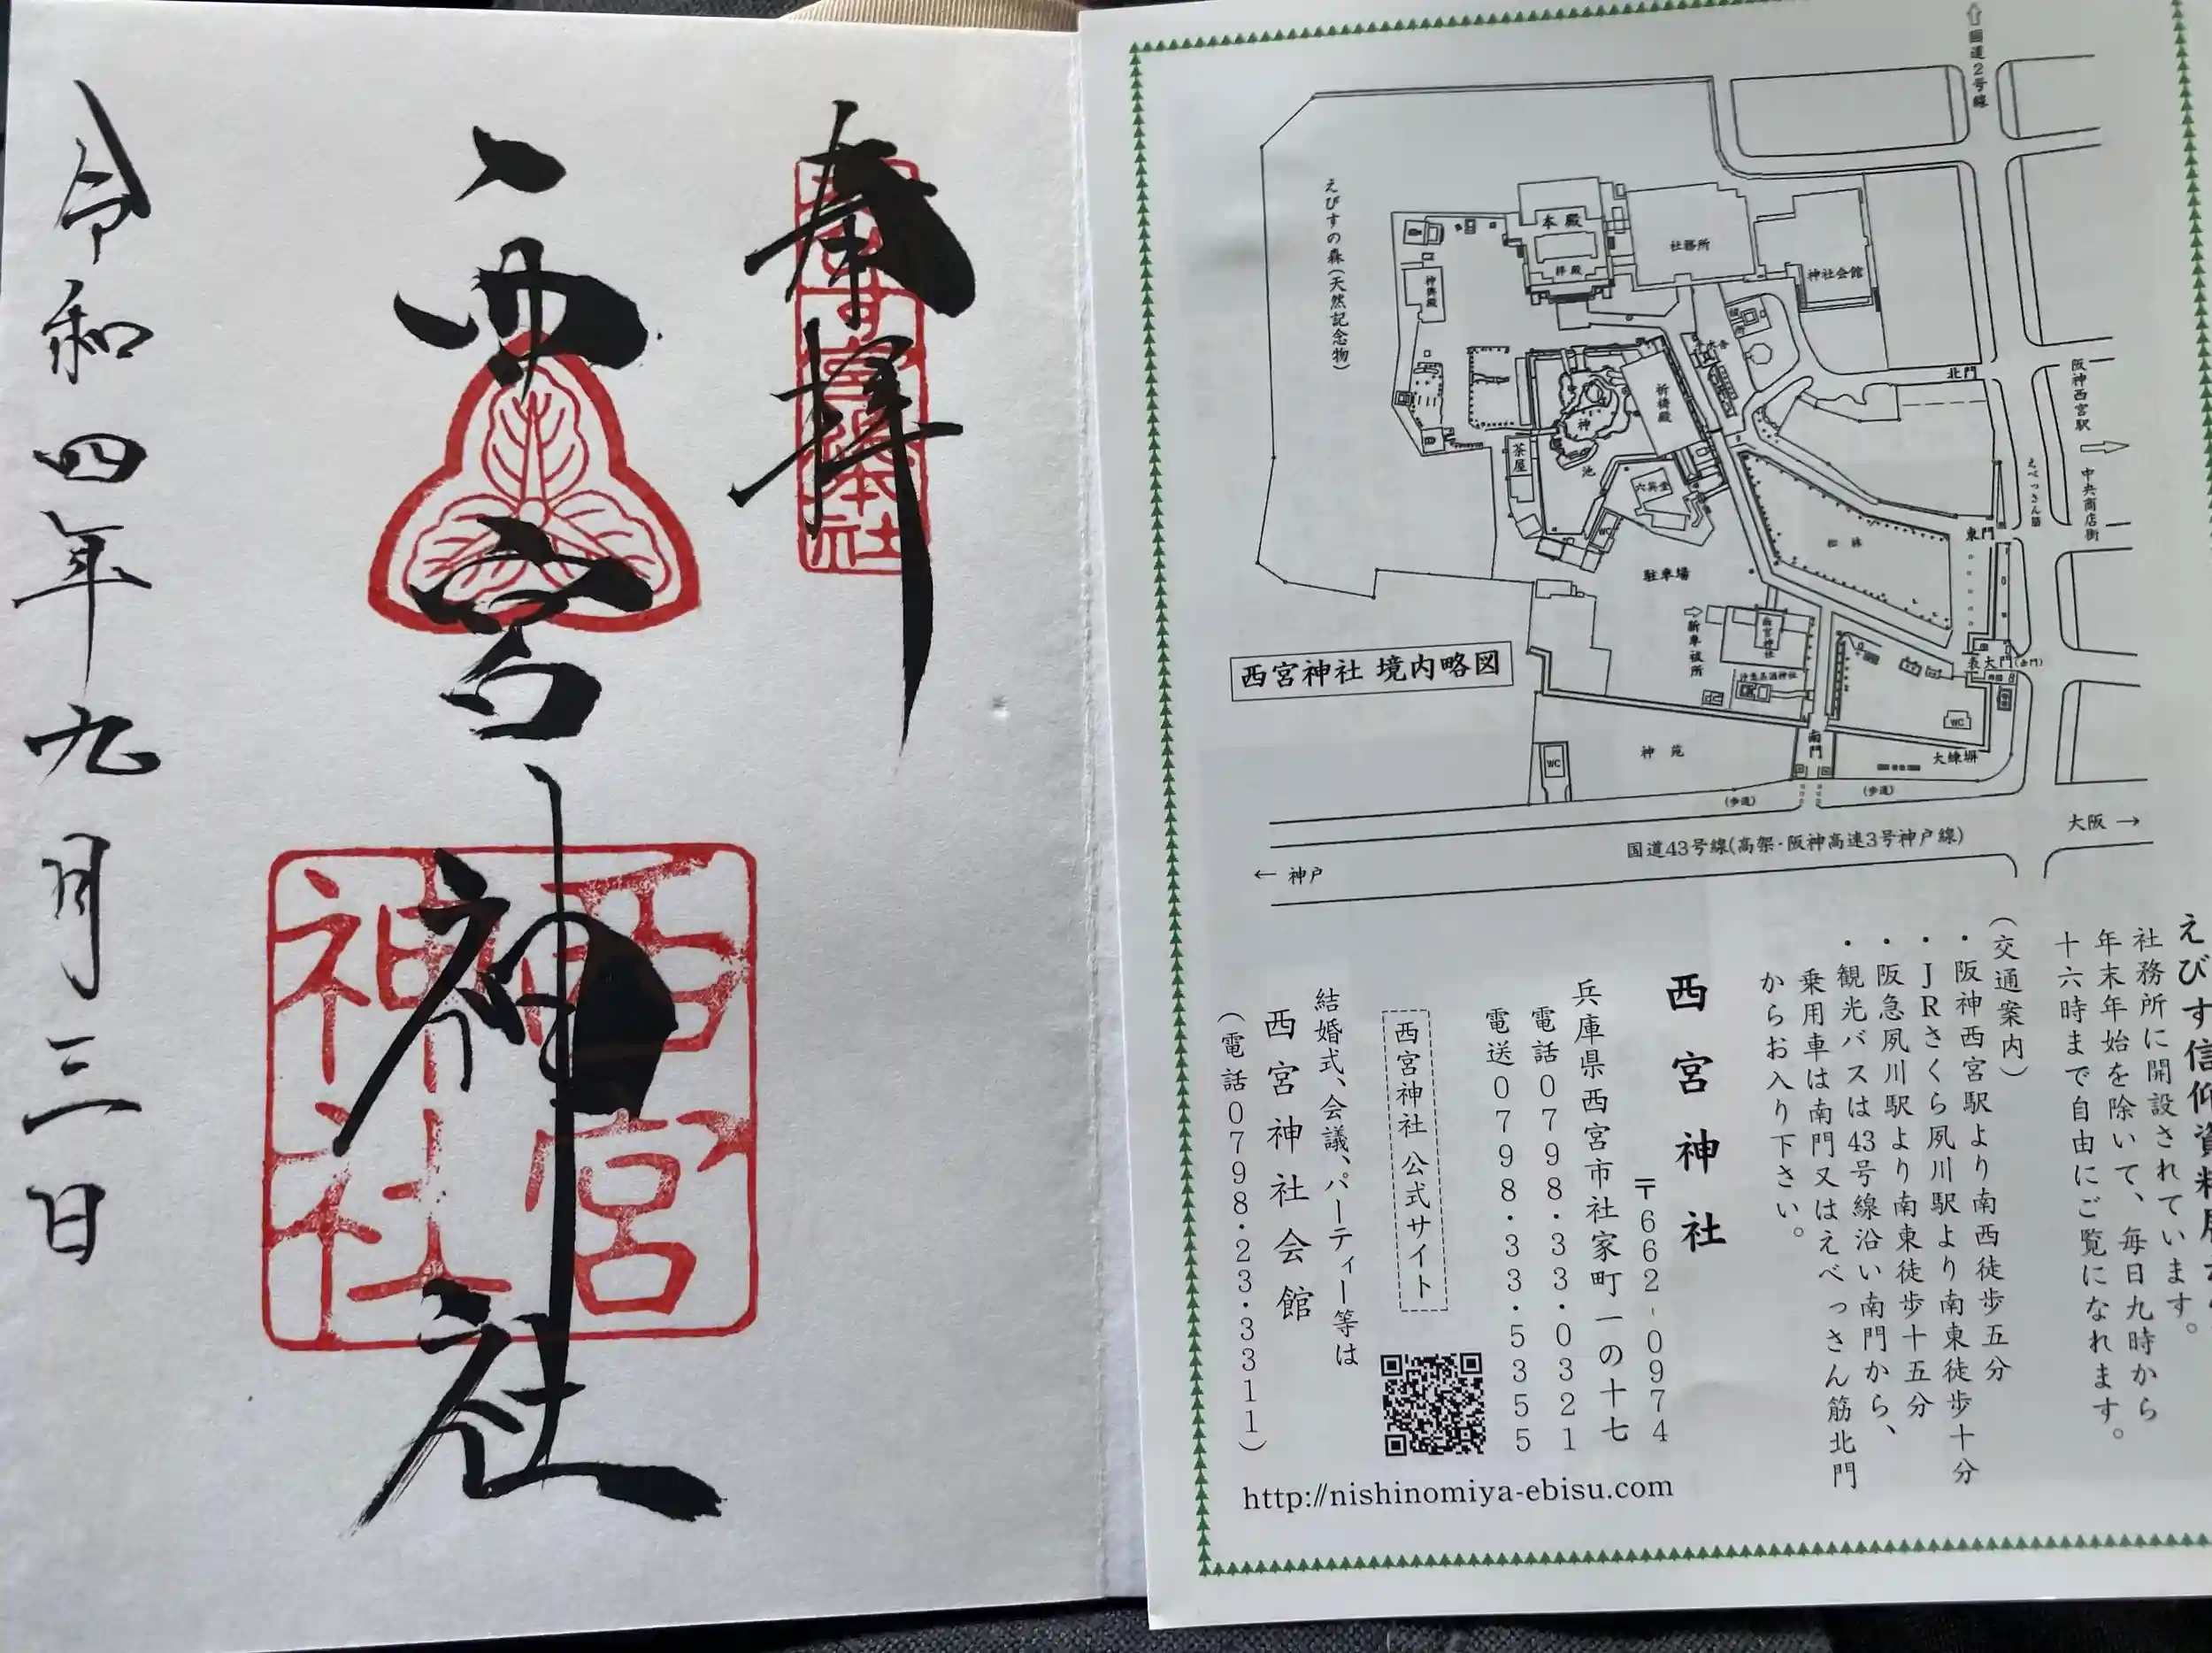 奉拝
西宮神社
令和四年九月三日
西宮
神社
国道2号線
えびすの森(天然記念物)
本殿
拝殿
社務所
神社会館
神輿殿
祈祷殿
神
池
茶屋
六英堂
北門
阪神西宮駅
中央商店街
えべっさん筋
東門
松林
駐車場
新車祓所
表大門
西宮神社 境内略図
神苑
WC
WC
南門
大練塀
(歩道)
(歩道)
大阪 →
国道43号線(高架・阪神高速3号神戸線)
← 神戸
社務所に開設されています。
年末年始を除いて、毎日九時から
十六時まで自由にご覧になれます。
(交通案内)
・阪神西宮駅より南西徒歩五分
・JRさくら夙川駅より南東徒歩十分
・阪急夙川駅より南東徒歩十五分
・観光バスは43号線沿い南門から、
乗用車は南門又はえべっさん筋北門
からお入り下さい。
西宮神社
〒662-0974
兵庫県西宮市社家町一の十七
電話0798・33・0321
電送0798・33・5355
西宮神社 公式サイト
結婚式、会議、パーティー等は
西宮神社会館
(電話0798・23・3311)
http://nishinomiya-ebisu.com